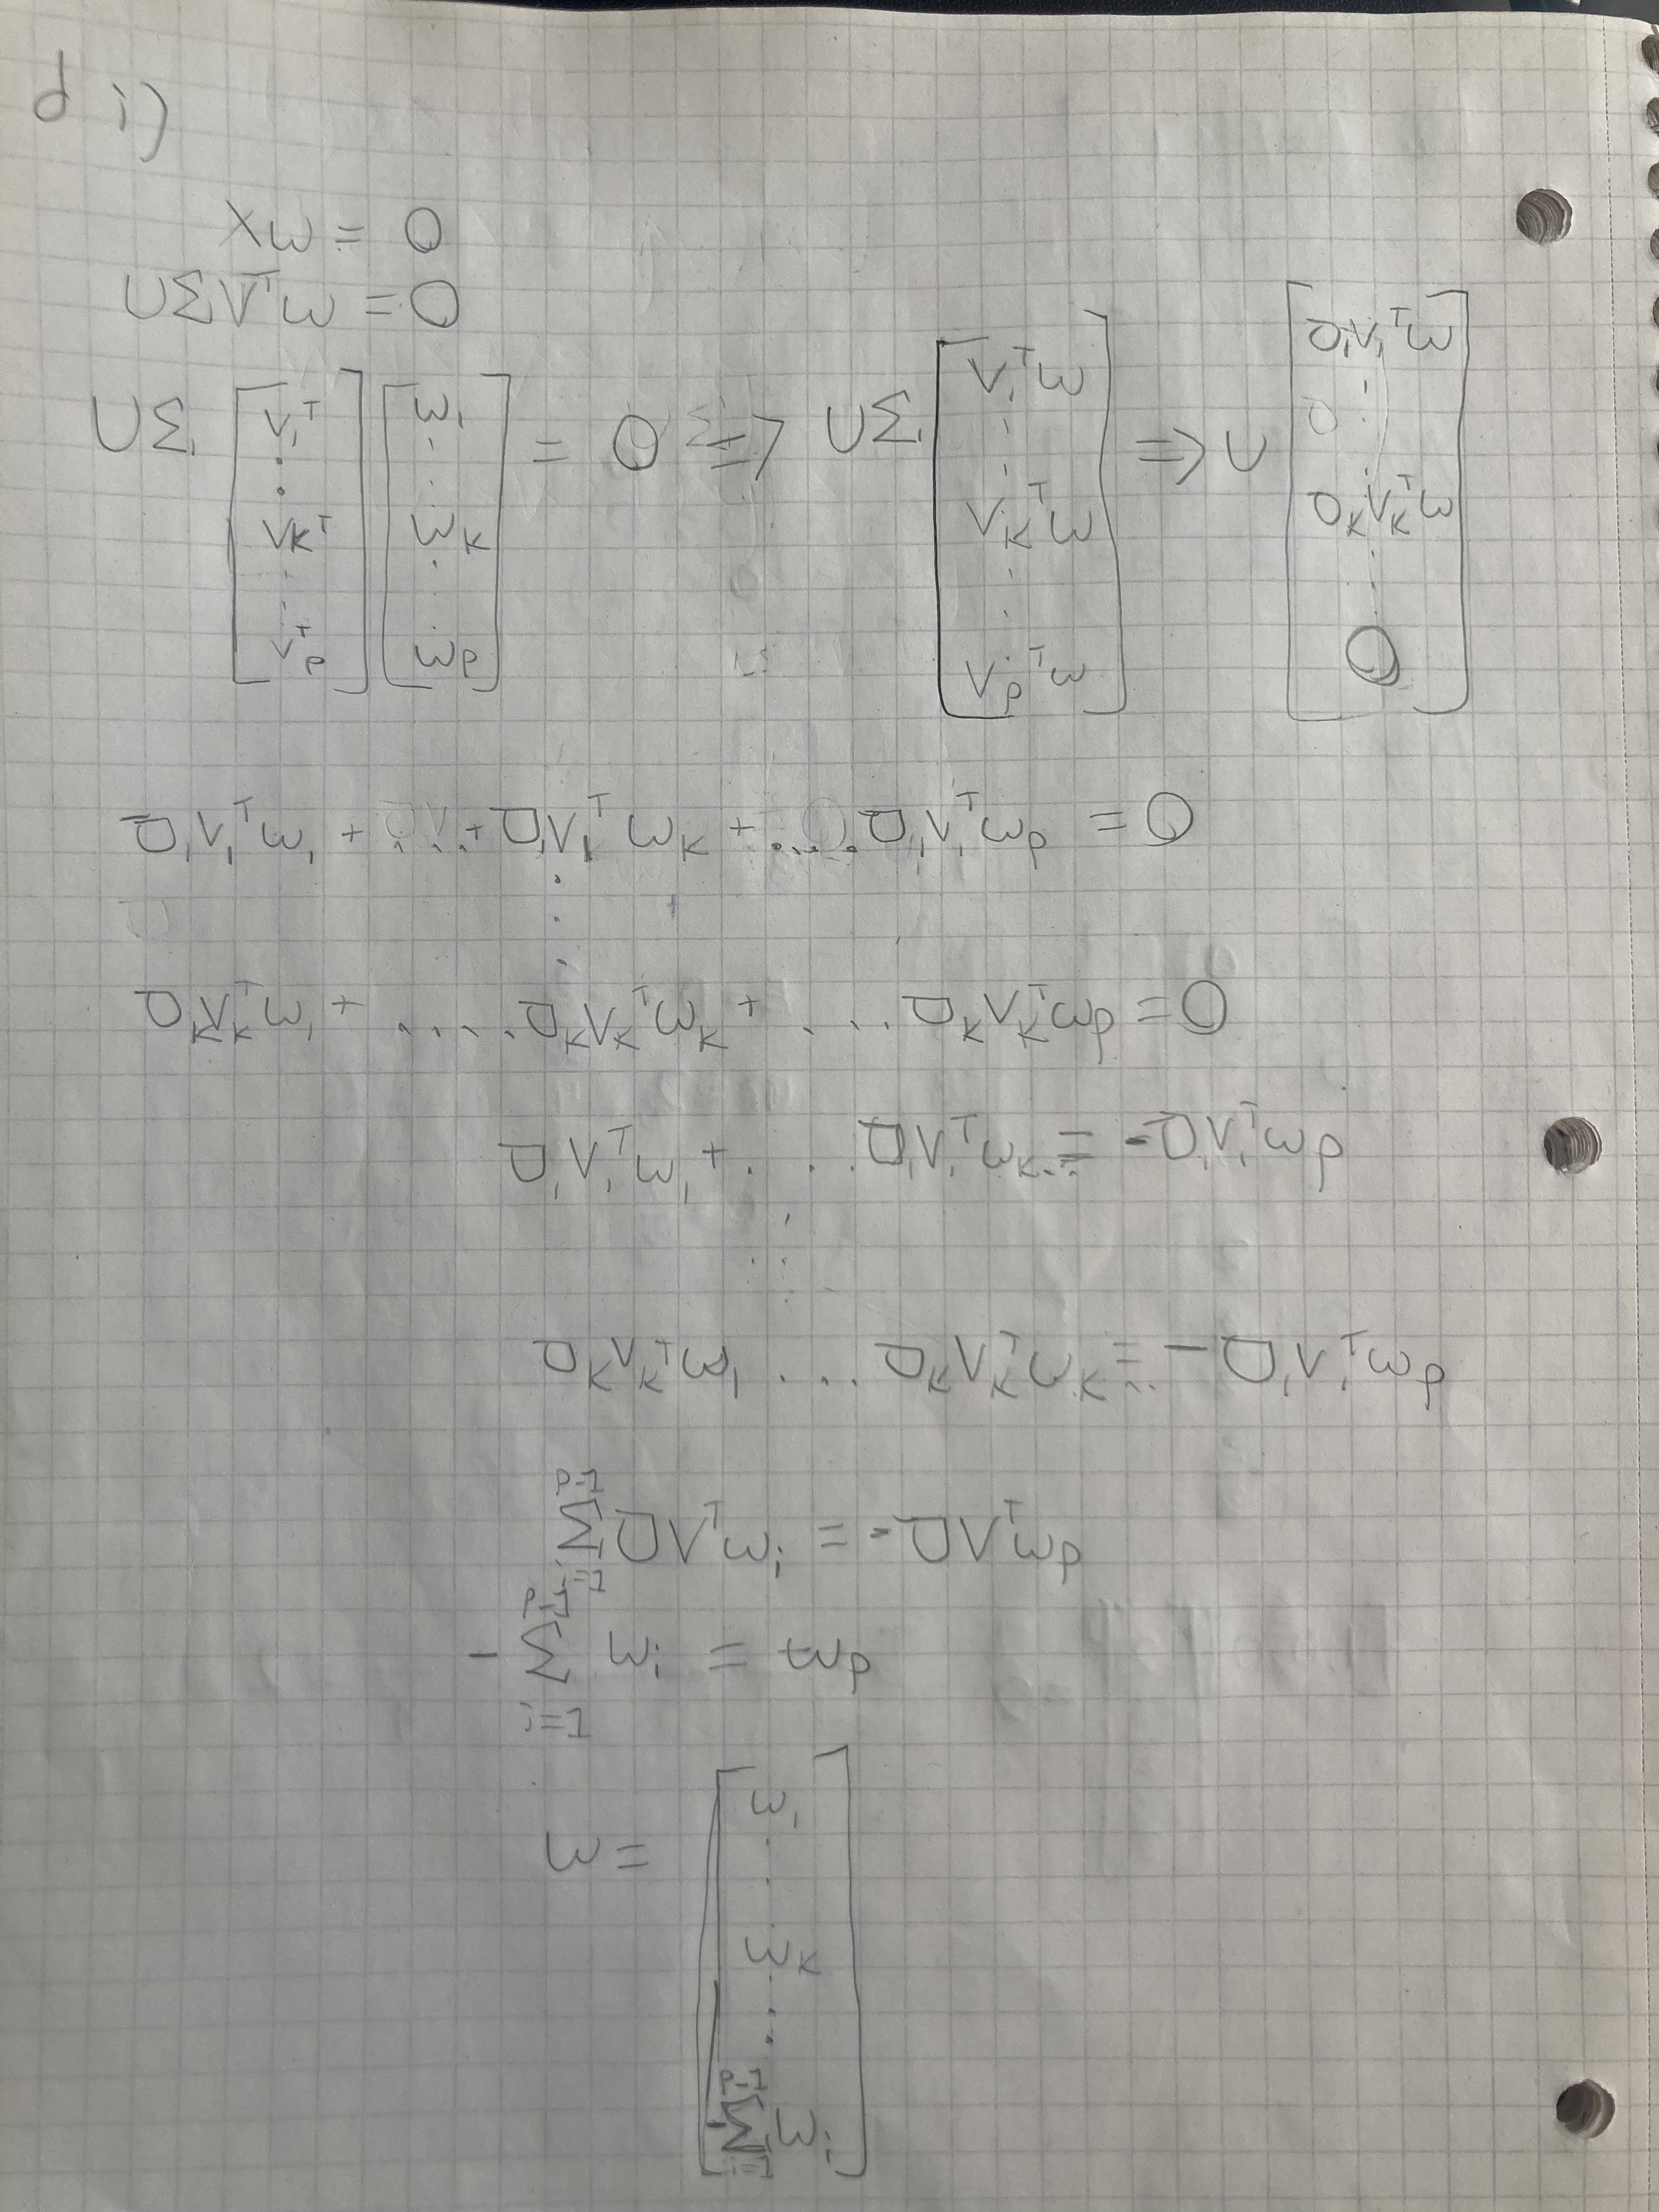 d i)
Xω = 0
UΣVᵀω = 0
UΣ [v₁ᵀ ⋮ vₖᵀ ⋮ vₚᵀ] [ω₁ ⋮ ωₖ ⋮ ωₚ] = 0 => UΣ [v₁ᵀω ⋮ vₖᵀω ⋮ vₚᵀω] => U [σ₁v₁ᵀω ⋮ σₖvₖᵀω ⋮ 0]
σ₁v₁ᵀω₁ + ... + σ₁v₁ᵀωₖ + .... σ₁v₁ᵀωₚ = 0
⋮
σₖvₖᵀω₁ + .... σₖvₖᵀωₖ + ... σₖvₖᵀωₚ = 0
σ₁v₁ᵀω₁ + ... σ₁v₁ᵀωₖ... = -σ₁v₁ᵀωₚ
⋮
σₖvₖᵀω₁ ... σₖvₖᵀωₖ... = -σ₁v₁ᵀωₚ
Σᵢ₌₁ᵖ⁻¹ σvᵀωᵢ = -σvᵀωₚ
- Σᵢ₌₁ᵖ⁻¹ ωᵢ = ωₚ
ω = [ω₁ ⋮ ωₖ ⋮ -Σᵢ₌₁ᵖ⁻¹ ωᵢ]